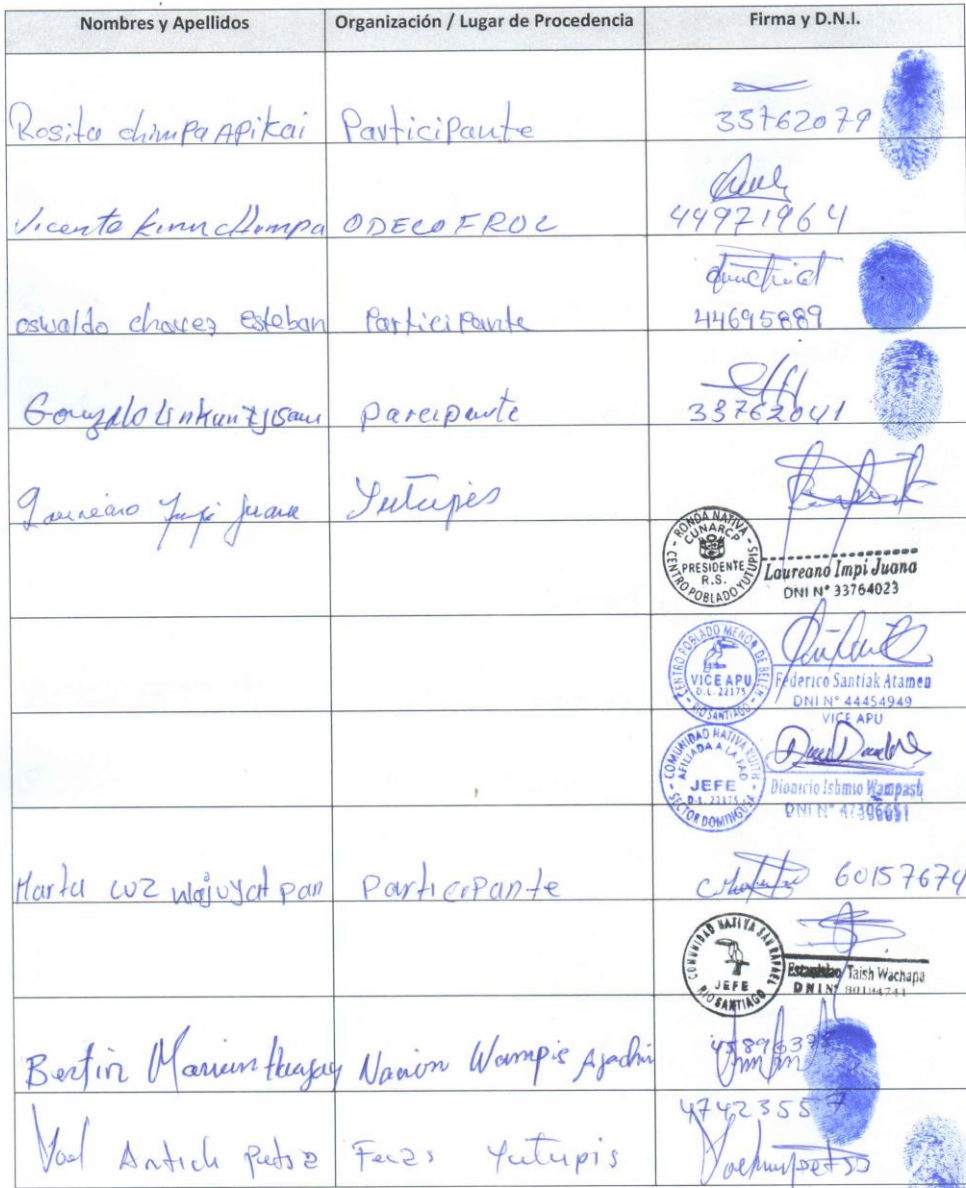 Nombres y Apellidos Organización / Lugar de Procedencia Firma y D.N.I.
Rosita chimpa Apikai Participante 33762079
Vicente kinin chimpa ODECOFROC 44971964
oswaldo chavez esteban Participante 44695889
Gonzalo parcipante 33762041
Laureano Impi Juana Yutupis
RONDA NATIVA CUNARCP
PRESIDENTE
R.S.
CENTRO POBLADO YUTUPIS
Laureano Impi Juana
DNI N° 33764023
CENTRO POBLADO MENOR DE BELEN
VICE APU
D.L. 22175
RIO SANTIAGO
Federico Santiak Atamen
DNI N° 44454949
VICE APU
COMUNIDAD NATIVA KUITH
AFILIADA A LA FAD
JEFE
D.L. 22175
SECTOR DOMINGUSA
Dionicio Isbmio Wampash
DNI N°
Marta luz wajuyat pan participante 60157674
COMUNIDAD NATIVA SAN RAFAEL
JEFE
RIO SANTIAGO
Estanislao Taish Wachapa
DNI N° 80194741
Bertin Nacion Wampis
Yoel Antich Petsa Yutupis 47423557